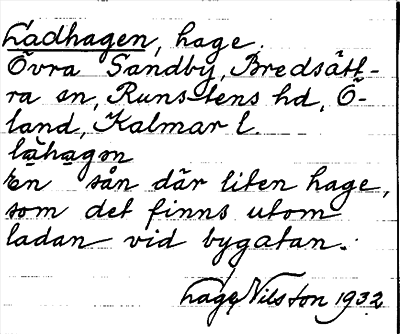 Ladhagen, hage.
Övra Sandby, Bredsätt-
ra sn, Runstens hd, Ö-
land, Kalmar l.
lạ̄hagən
En sån där liten hage,
som det finns utom
ladan vid bygatan.
Nilston 1932